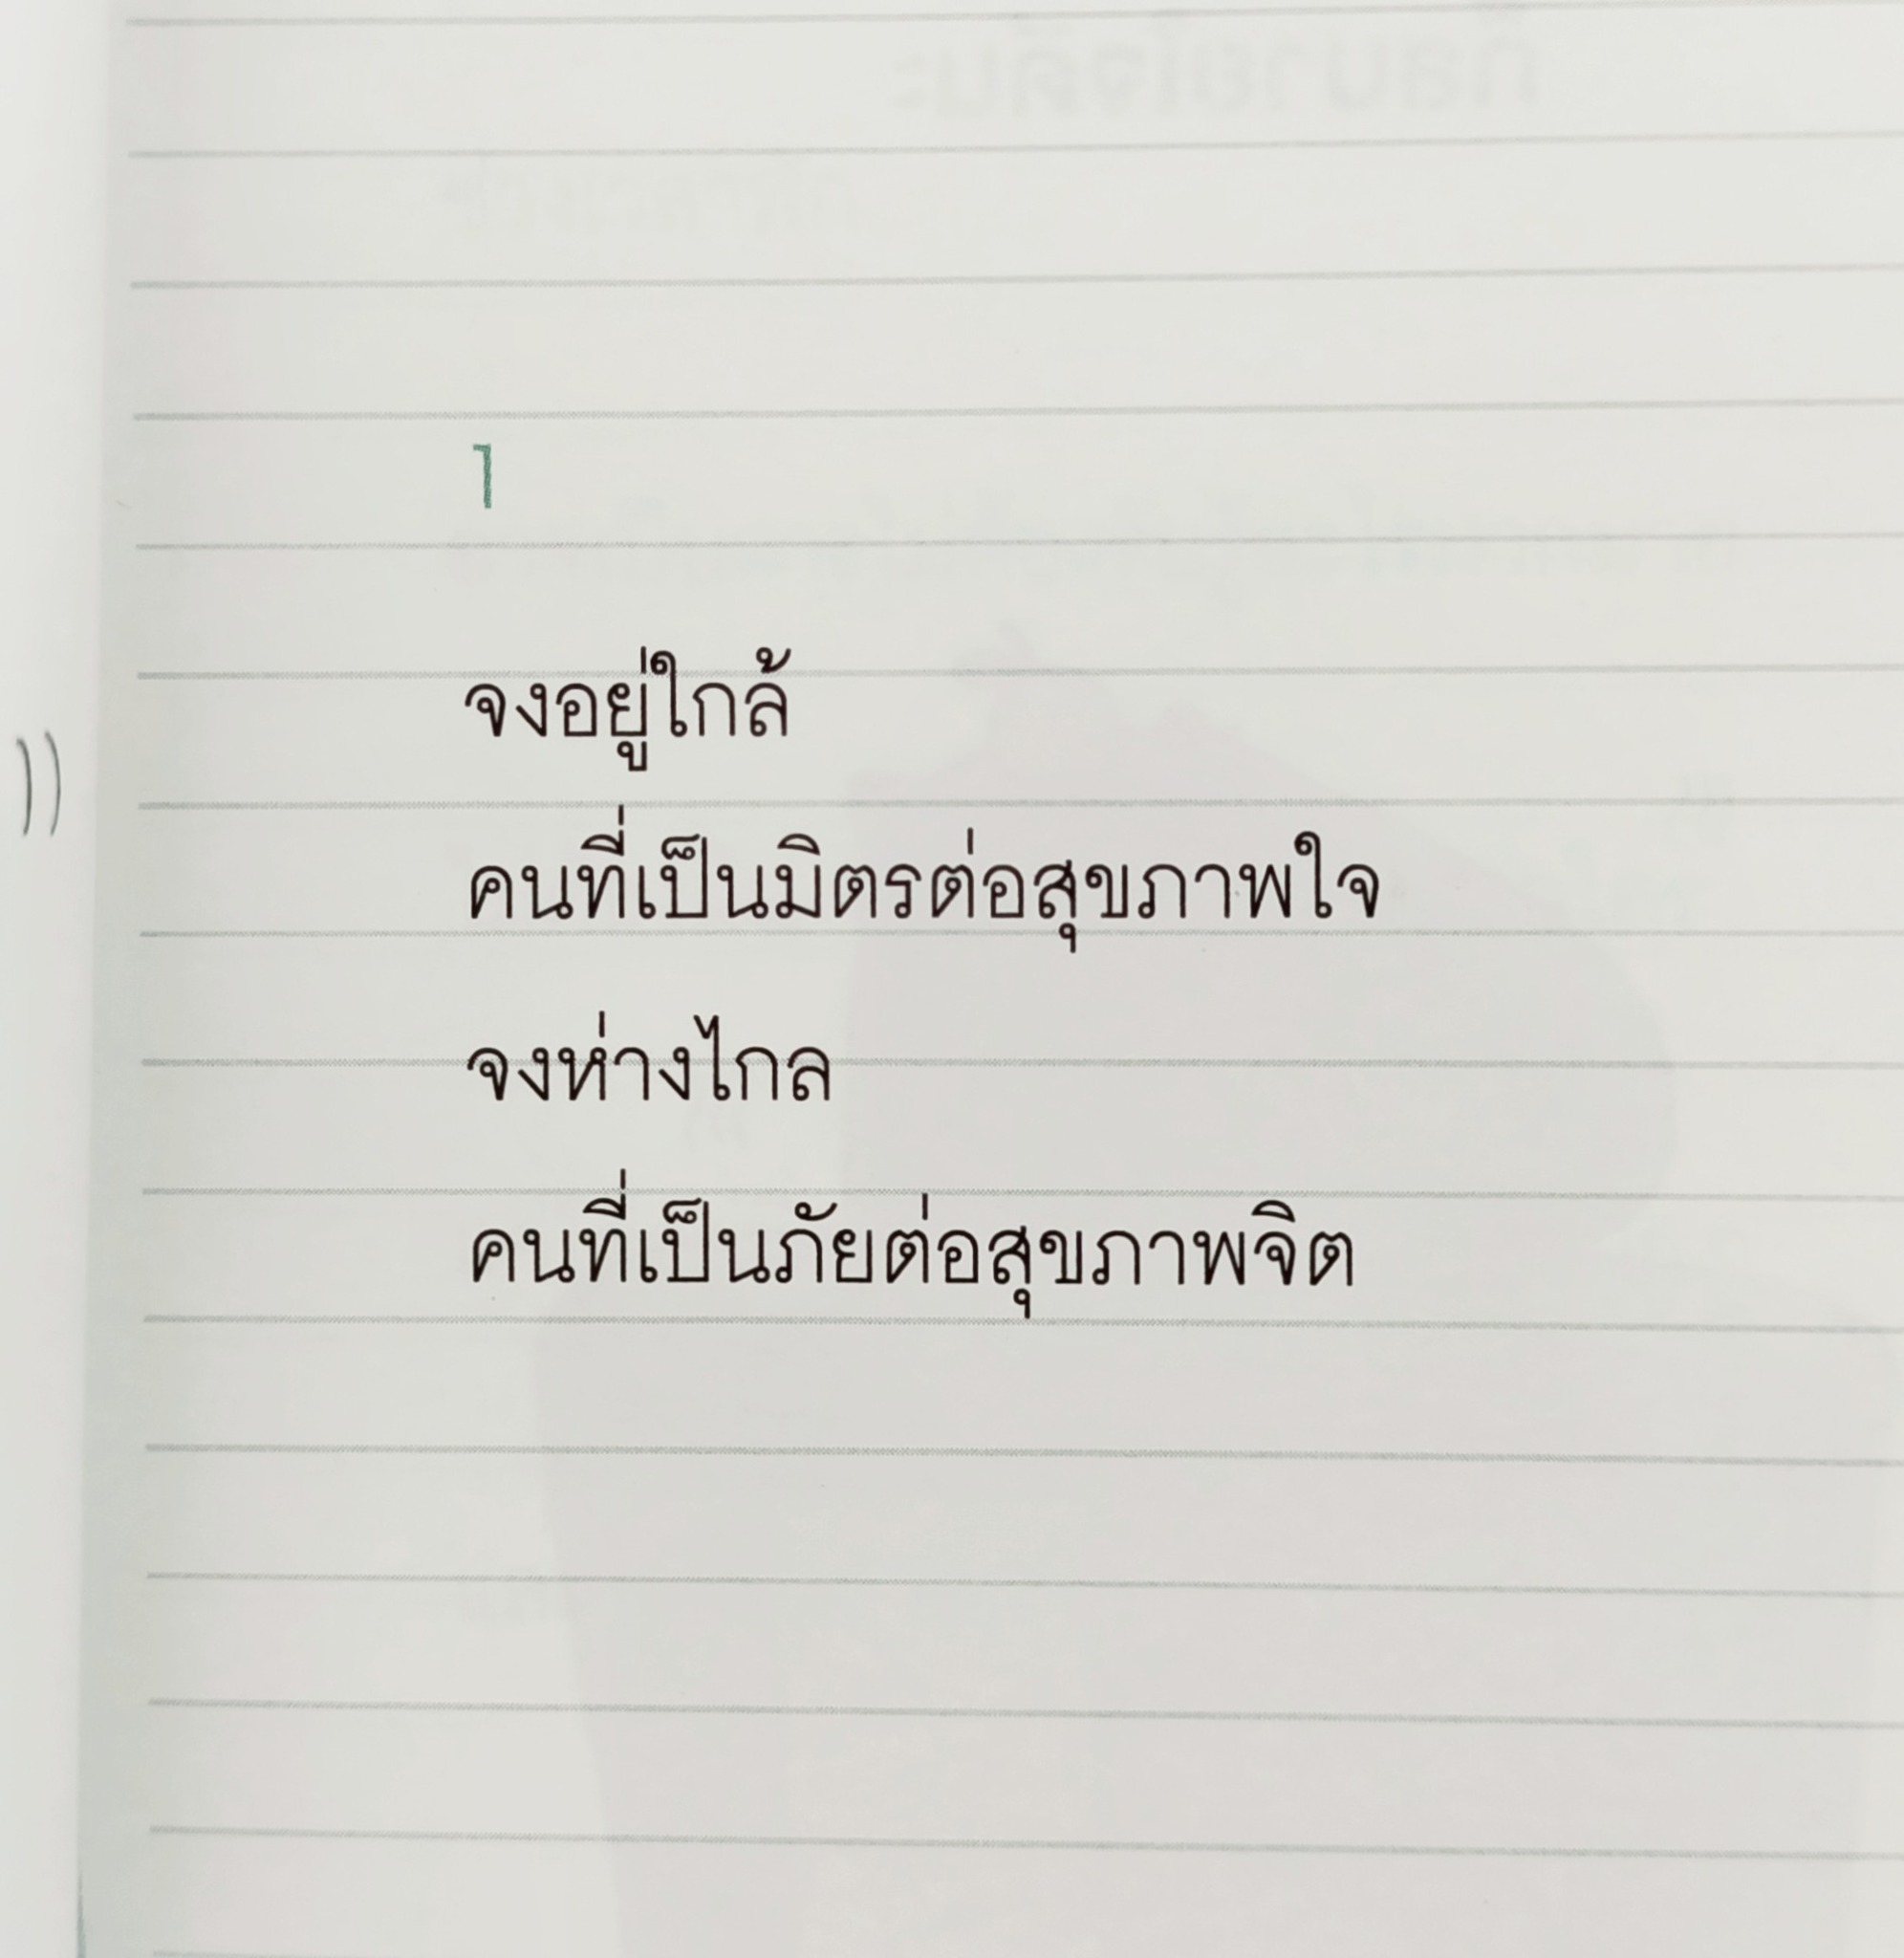 1
จงอยู่ใกล้
คนที่เป็นมิตรต่อสุขภาพใจ
จงห่างไกล
คนที่เป็นภัยต่อสุขภาพจิต